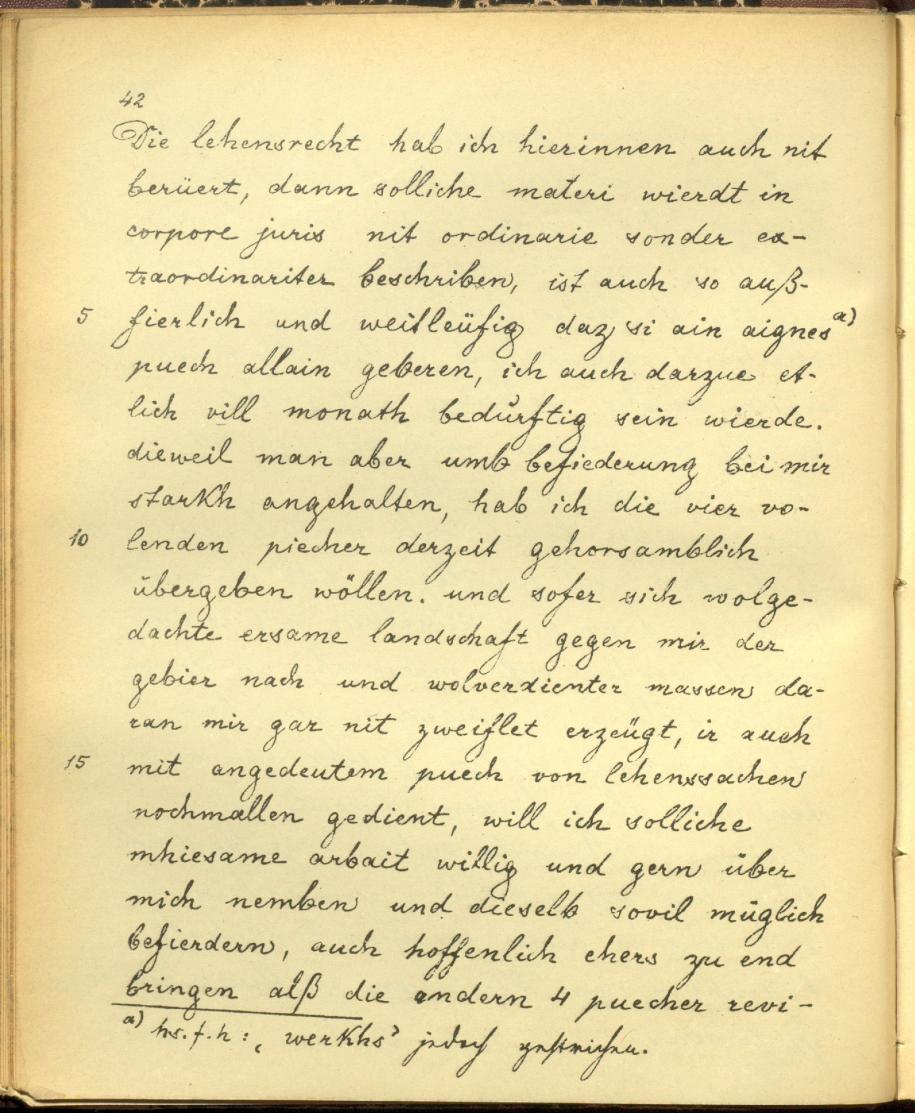 42
Die lehensrecht hab ich hierinnen auch nit
berüert, dann solliche materi wierdt in
corpore juris nit ordinarie sonder ex-
traordinariter beschriben, ist auch so auß-
5 fierlich und weitleüfig daz si ain aignes a)
puech allain geberen, ich auch darzue et-
lich vill monath bedürftig sein wierde.
dieweil man aber umb befiederung bei mir
starkh angehalten, hab ich die vier vo-
10 lenden piecher derzeit gehorsamblich
übergeben wöllen. und sofer sich wolge-
dachte ersame landschaft gegen mir der
gebier nach und wolverdienter massen da-
ran mir gar nit zweiflet erzeügt, ir auch
15 mit angedeutem puech von lehenssachen
nochmallen gedient, will ich solliche
mhiesame arbait willig und gern über
mich nemben und dieselb sovil müglich
befierdern, auch hoffenlich ehers zu end
bringen alß die andern 4 puecher revi-
a) hs. f. h: ‚werkhs‘ jedoch gestrichen.